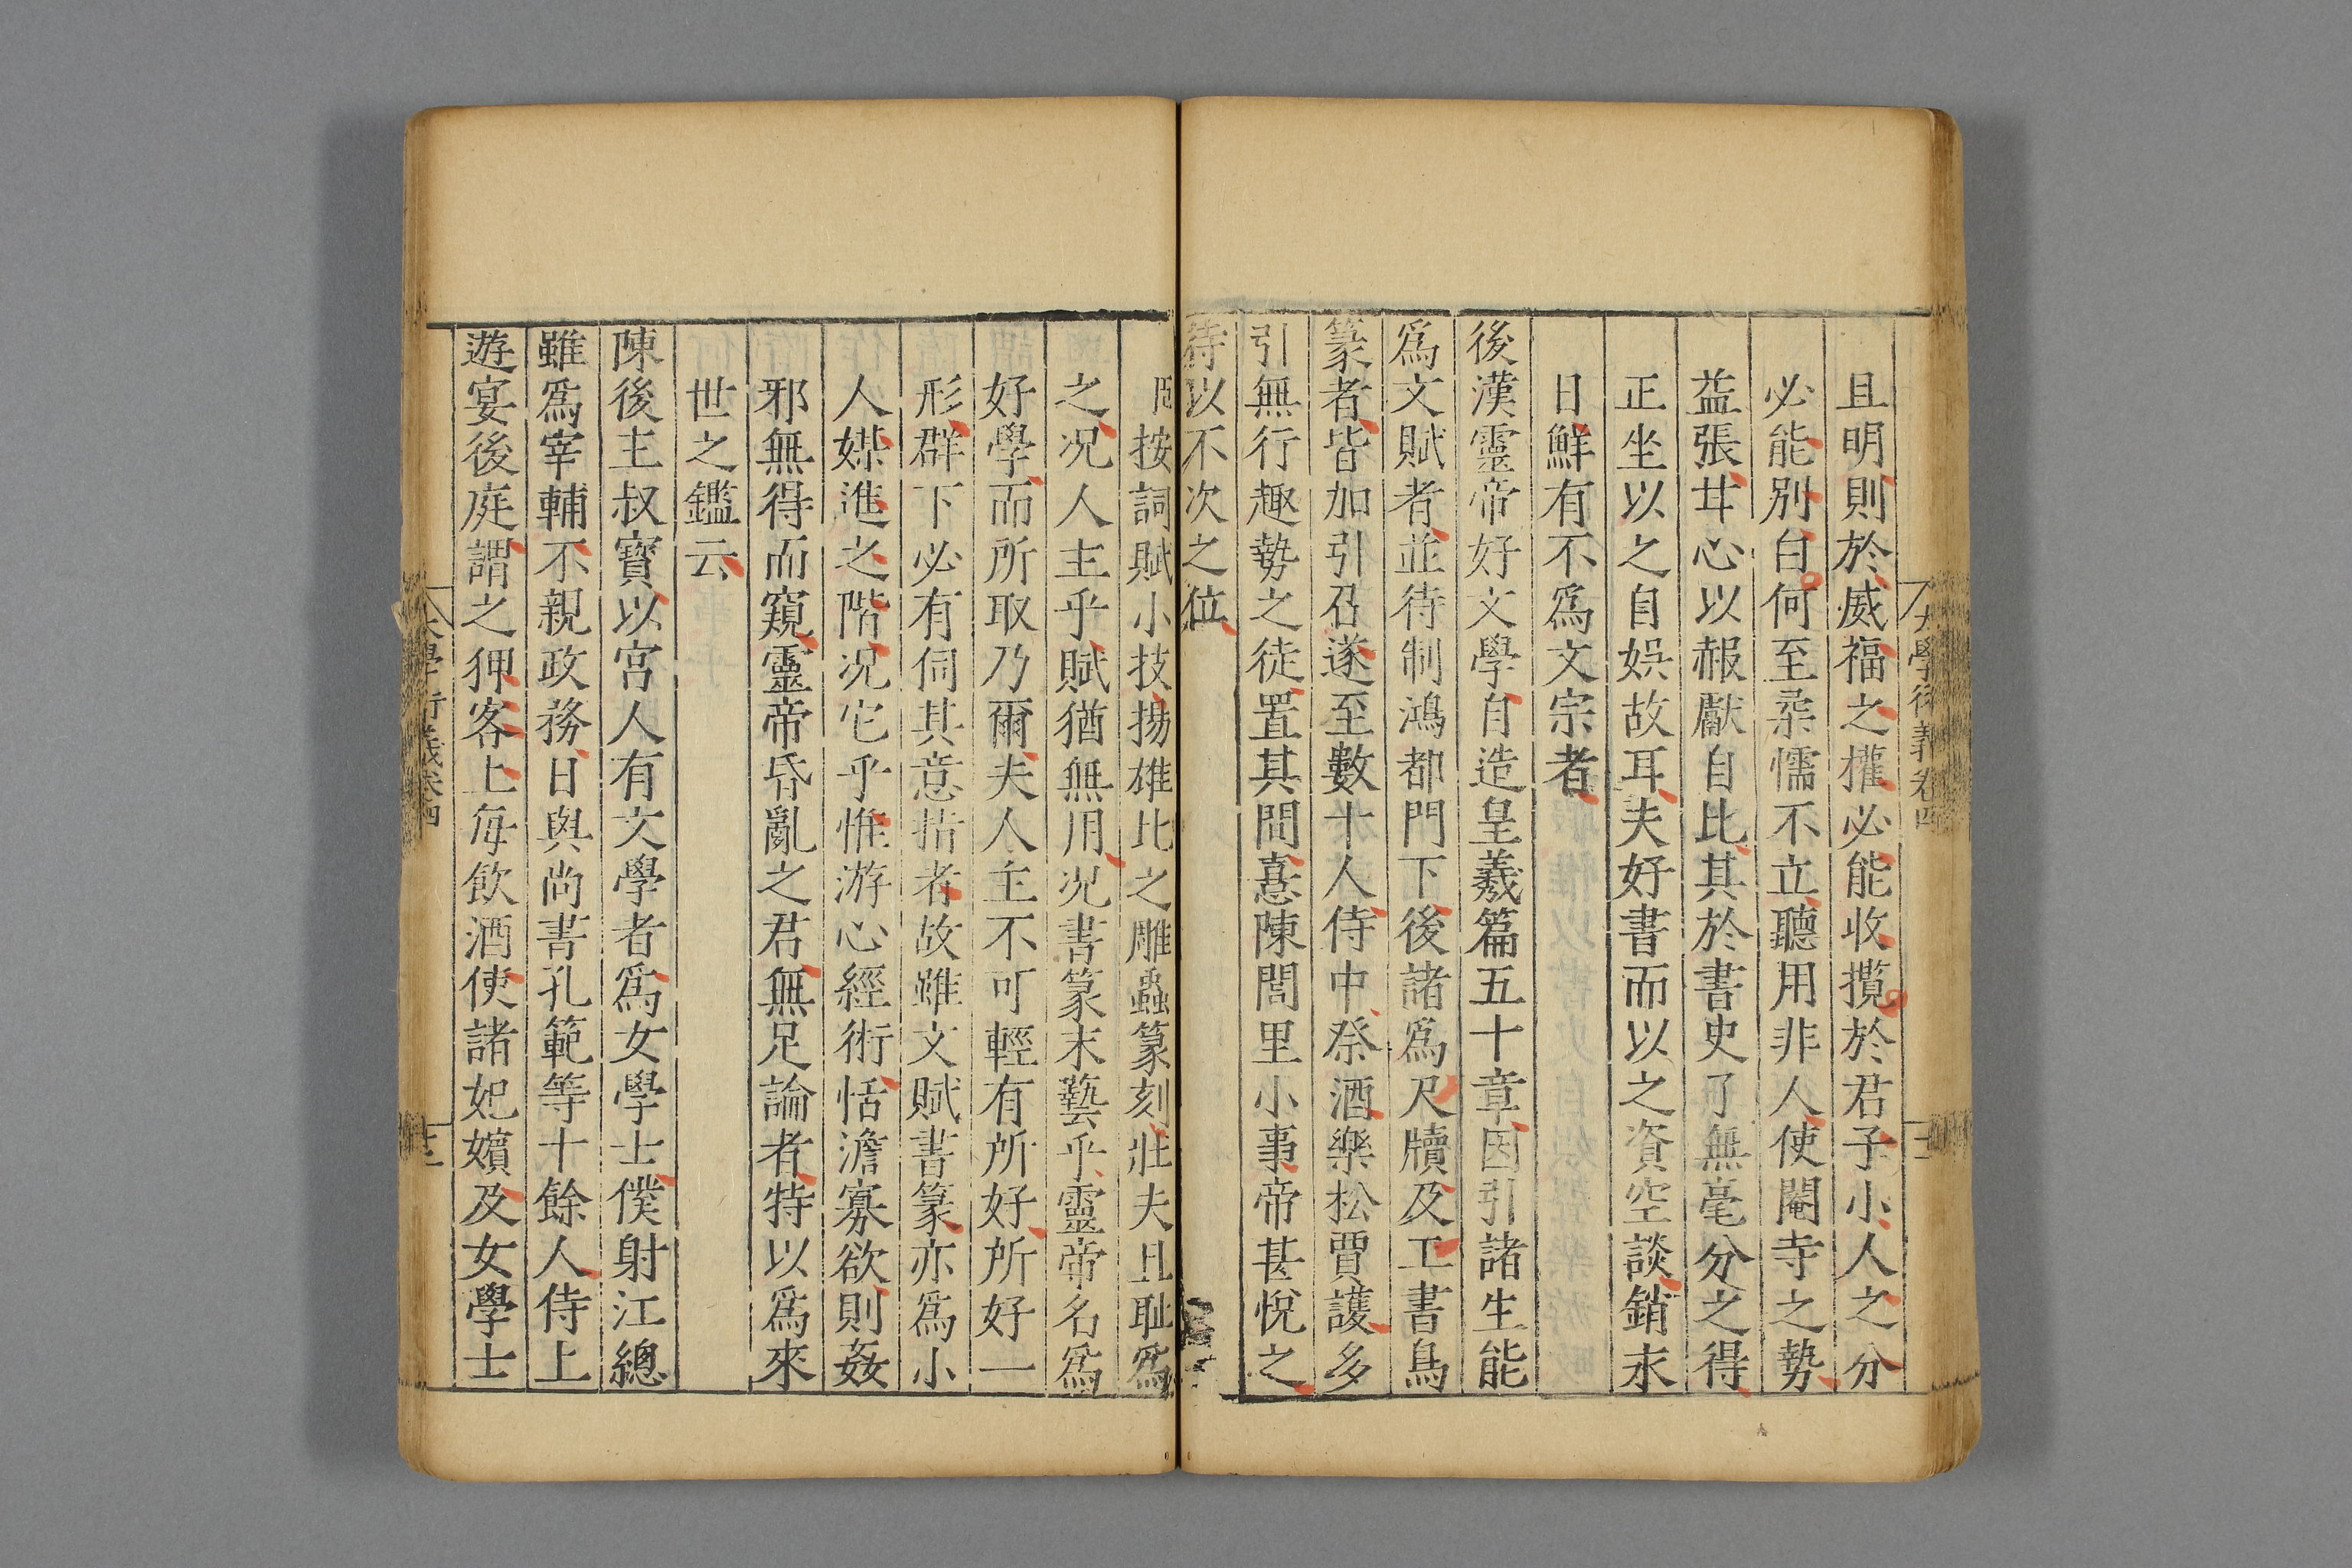 且明則於威福之權必能收攬於君子小人之分
必能別白何至柔懦不立聽用非人使閹寺之勢
益張甘心以赧獻自比其於書史了無毫分之得
正坐以之自娛故耳夫好書而以之資空談銷永
日鮮有不爲文宗者
後漢靈帝好文學自造皇羲篇五十章因引諸生能
爲文賦者並待制鴻都門下後諸爲尺牘及工書鳥
篆者皆加引召遂至數十人侍中祭酒樂松賈護多
引無行趣勢之徒置其間憙陳閭里小事帝甚悅之
待以不次之位
按詞賦小技揚雄比之雕蟲篆刻壯夫且耻爲
之况人主乎賦猶無用况書篆末藝乎靈帝名爲
好學而所取乃爾夫人主不可輕有所好所好一
形群下必有伺其意指者故雖文賦書篆亦爲小
人媒進之階况它乎惟游心經術恬澹寡欲則姦
邪無得而窺靈帝昏亂之君無足論者特以爲來
世之鑑云
陳後主叔寶以宮人有文學者爲女學士僕射江總
雖爲宰輔不親政務日與尚書孔範等十餘人侍上
遊宴後庭謂之狎客上每飲酒使諸妃嬪及女學士
大學衍義卷四